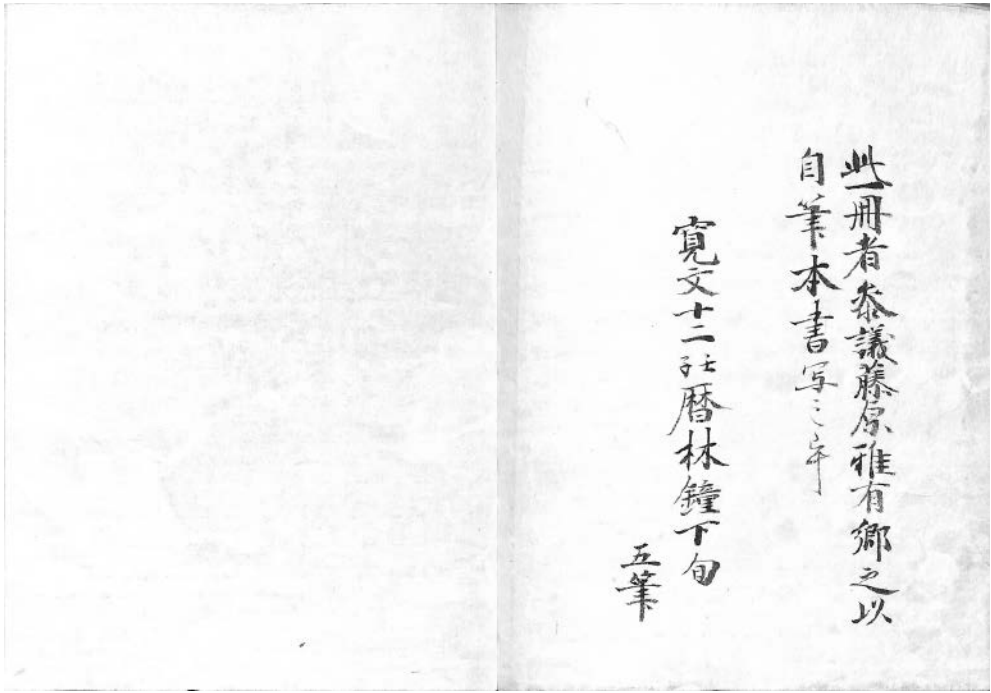 此一冊者参議藤原雅有郷之以
自筆本書写之畢
寛文十二壬子暦林鐘下旬
五筆